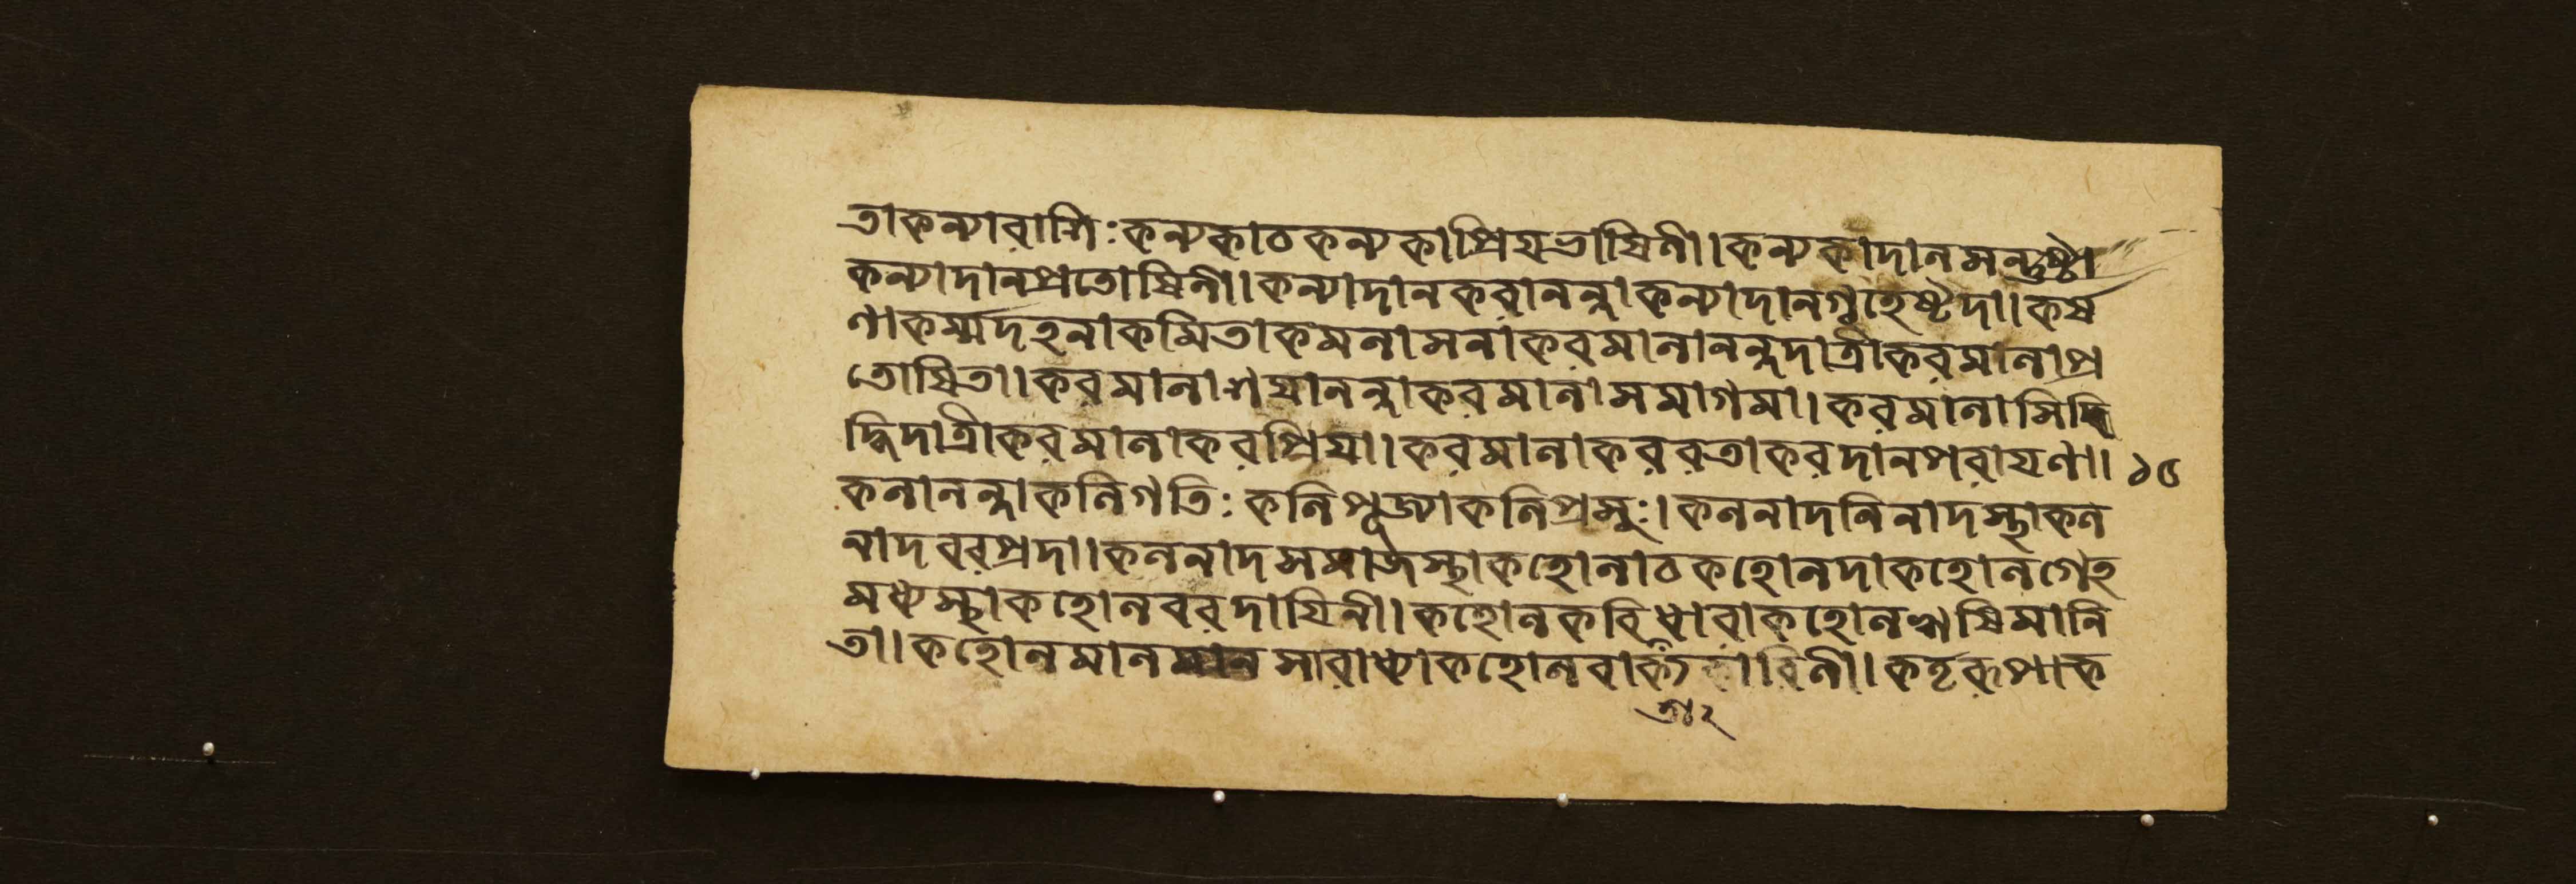 তাকন্যারাশিঃকন্যকাঠকন্যকাপ্রিয়ভাষিনী।কন্যকাদানসন্তুষ্টা
কন্যাদানপ্রতোষিনী।কন্যাদানকরানন্দাকন্যাদানগৃহেষ্টদা।কর্ষ
ণাকর্ম্মদহনাকমিতাকমনাসনাকরমানানন্দদাত্রীকরমানাপ্র
তোষিতা।করমানাশয়ানন্দাকরমানাসমাগমা।করমানাসিদ্ধি
দ্ধিদাত্রীকরমানাকরপ্রিয়া।করমানাকররতাকরদানপরায়ণা। ১৫
কনানন্দাকনিগতিঃকনিপূজ্যাকনিপ্রসুঃ।কননাদনিনাদস্থাকন
নাদবরপ্রদা।কননাদসমাজস্থাকহোনাঠকহোনদাকহোনগেহ
মধ্যস্থাকহোনবরদায়িনী।কহোনকবিধারাকহোনঋষিমানি
তা।কহোনমানসারাধ্যাকহোনবাক্যকারিনী।কর্তৃরূপাক